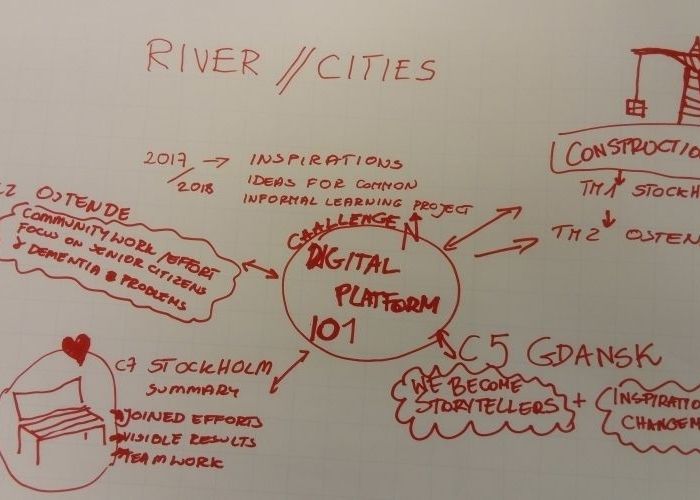 RIVER // CITIES
2017 → INSPIRATIONS
/ 2018 IDEAS FOR COMMON
INFORMAL LEARNING PROJECT
CONSTRUCTIO
TM1 STOCKH
TM2 OSTEN
OSTENDE
COMMUNITY WORK / EFFORT
FOCUS ON SENIOR CITIZENS
& DEMENTIA PROBLEMS
CHALLENGE N
DIGITAL
PLATFORM
101
C7 STOCKHOLM
SUMMARY
JOINED EFFORTS
VISIBLE RESULTS
TEAMWORK
C5 GDANSK
WE BECOME
STORYTELLERS
+
INSPIRATIO
CHANGEM